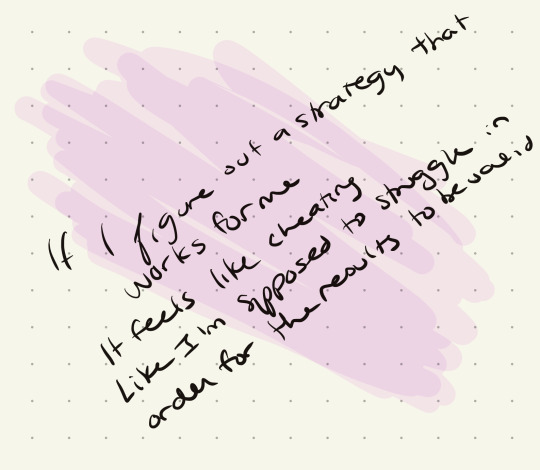 If I figure out a strategy that
works for me
It feels like cheating
Like I'm supposed to struggle in
order for the results to be valid